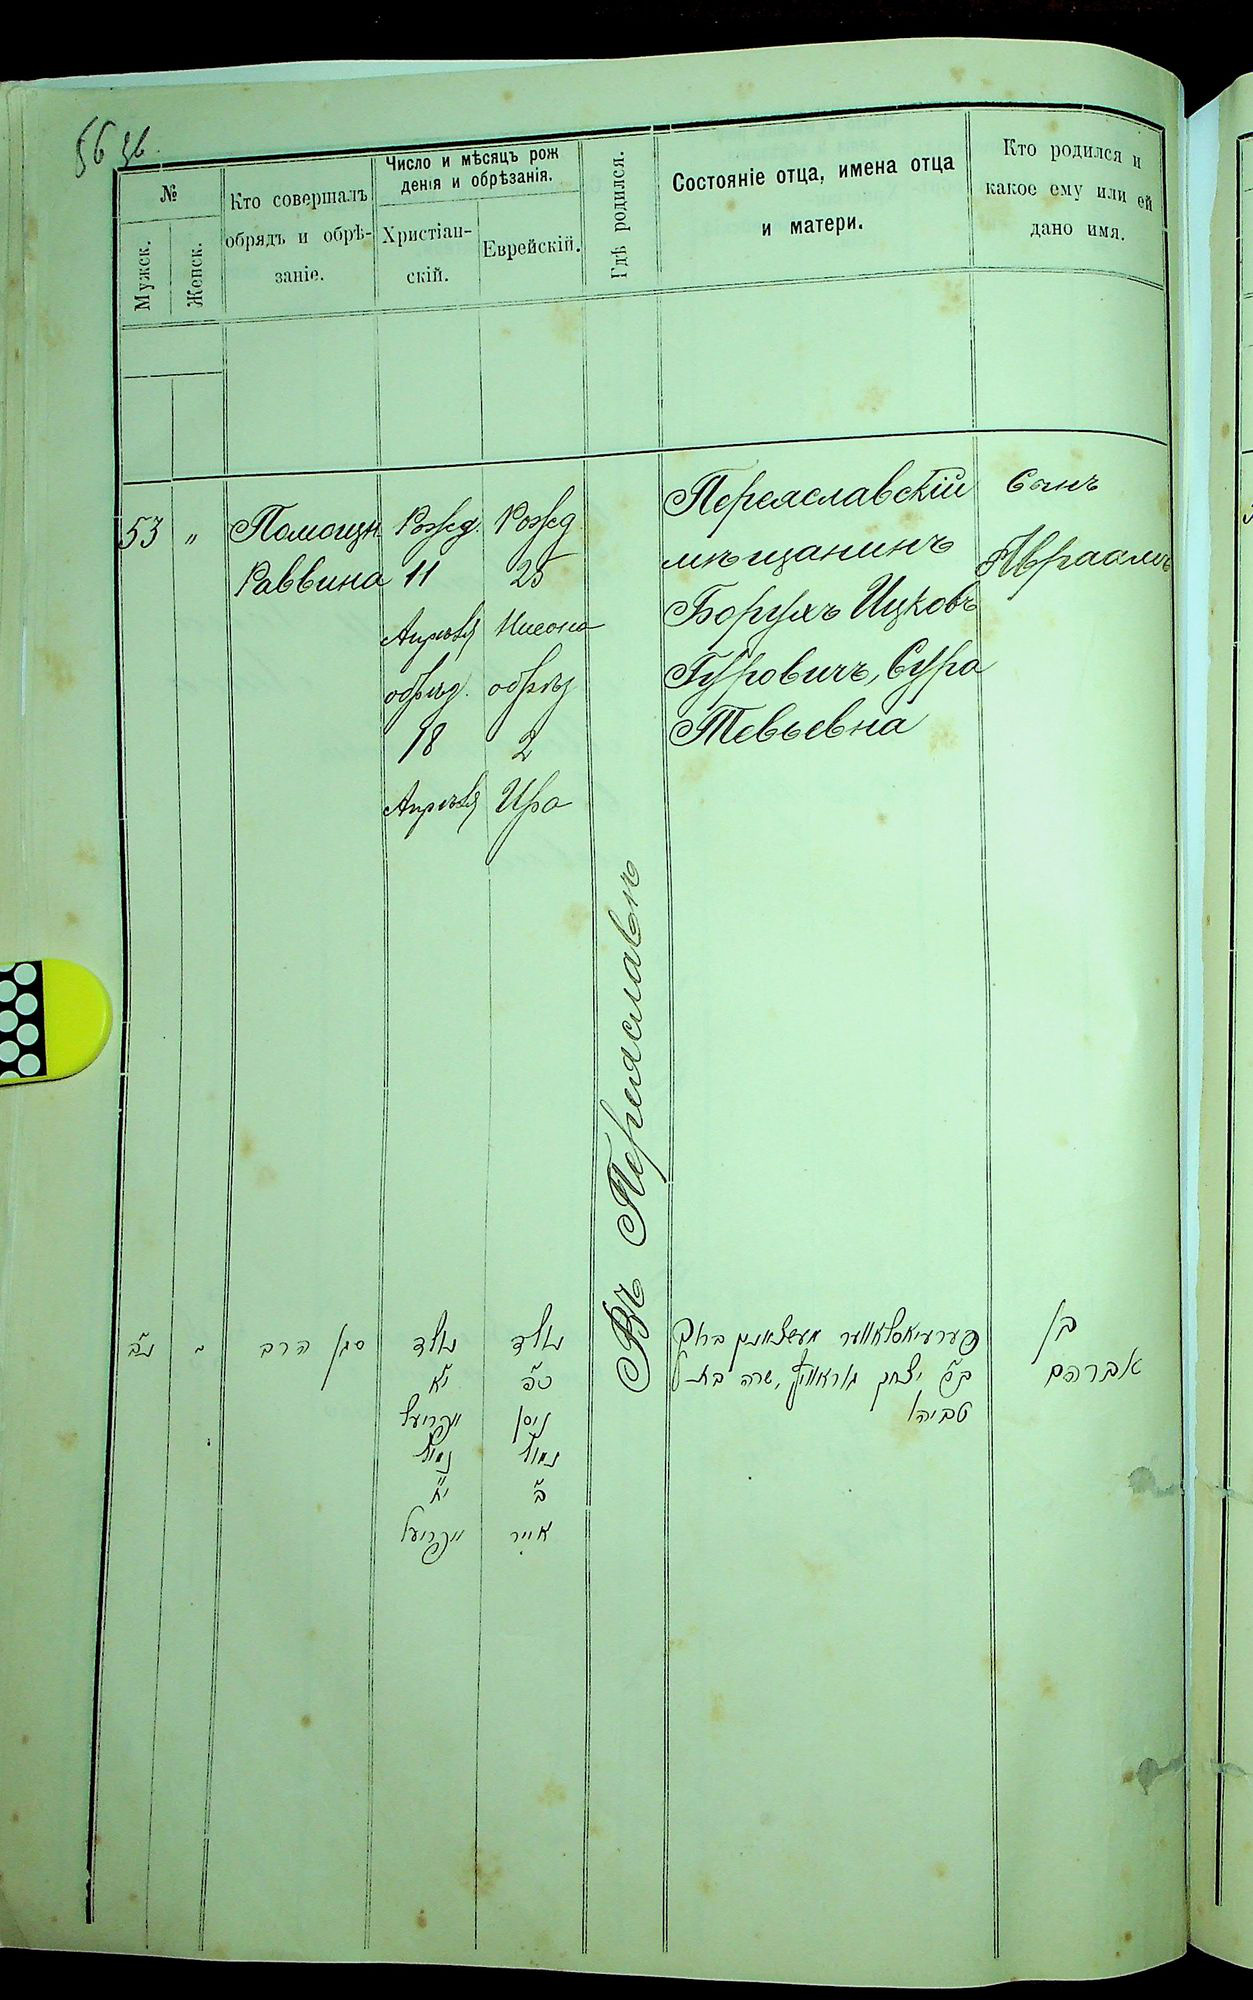 56 зв.
№
Мужск.
Женск.
Кто совершалъ
обрядъ и обрѣ-
заніе.
Число и мѣсяцъ рож
денія и обрѣзанія.
Христіан-
скій.
Еврейскій.
Гдѣ родился.
Состояніе отца, имена отца
и матери.
Кто родился и
какое ему или ей
дано имя.
53
"
Помощн.
Раввина
Рожд.
11
Апрѣля
обрѣз.
18
Апрѣля
Рожд
25
Нисона
обрѣз
2
Ира
Въ Переяславѣ
Переяславскій
мѣщанинъ
Борухъ Ицковъ
Гуровичъ, Сура
Тевьевна
Сынъ
Авраамъ
נ"ג
"
סגן הרב
נולד
י"א
אפריעל
נמול
י"ח
אפריעל
נולד
כ"ה
ניסן
נמול
ב"
אייר
פערעיאסלאווער מעשצאנין ברוך
יצחק גוראוויץ, שרה בת
טביה
בן
אברהם